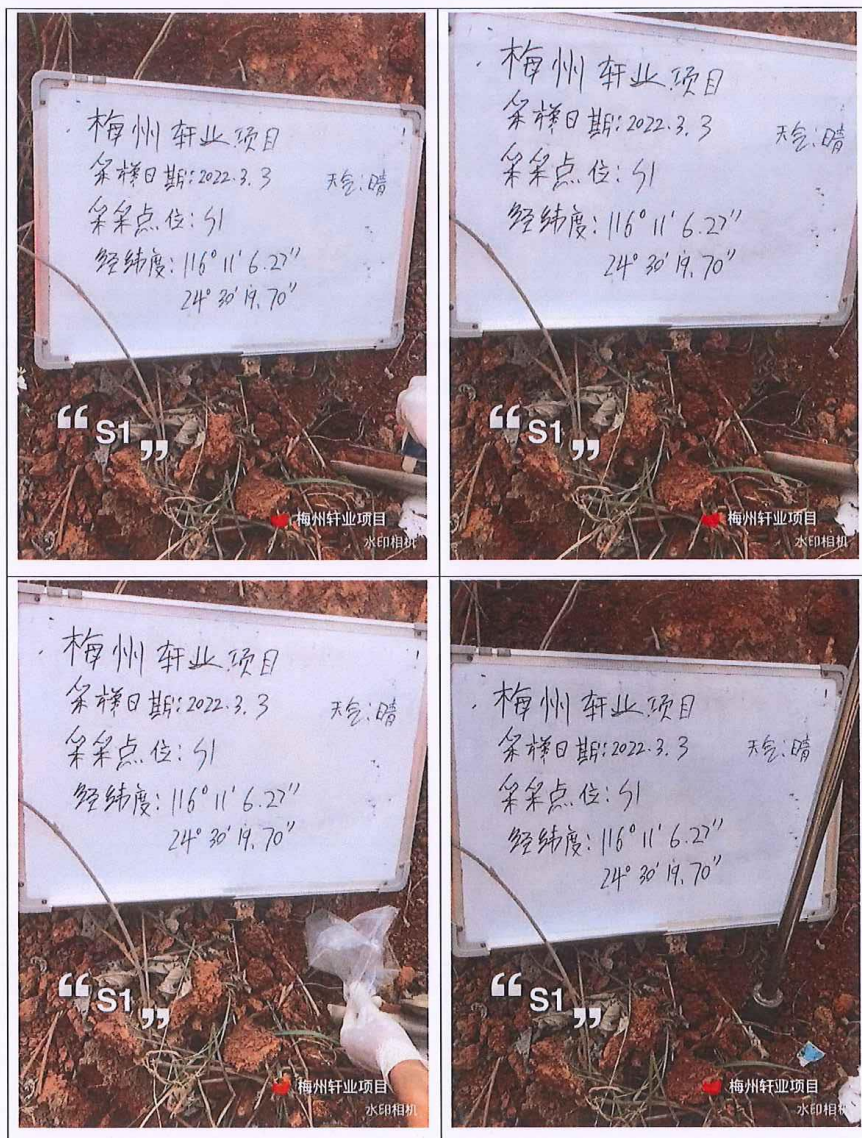 梅州轩业项目
采样日期:2022.3.3 天气:晴
采采点位:S1
经纬度:116° 11' 6.27"
24° 30' 19.70"
“ S1 ”
梅州轩业项目
水印相机
梅州轩业项目
采样日期:2022.3.3 天气:晴
采采点位:S1
经纬度:116° 11' 6.27"
24° 30' 19.70"
“ S1 ”
梅州轩业项目
水印相机
梅州轩业项目
采样日期:2022.3.3 天气:晴
采采点位:S1
经纬度:116° 11' 6.27"
24° 30' 19.70"
“ S1 ”
梅州轩业项目
水印相机
梅州轩业项目
采样日期:2022.3.3 天气:晴
采采点位:S1
经纬度:116° 11' 6.27"
24° 30' 19.70"
“ S1 ”
梅州轩业项目
水印相机